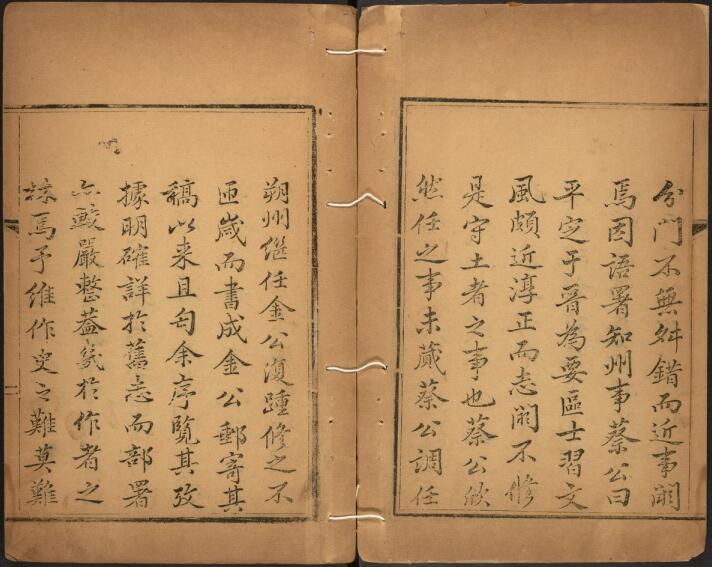 分門不無舛錯而近事闕
焉因語署知州事蔡公曰
平定于晉為要區士習文
風頗近淳正而志闕不修
是守土者之事也蔡公欣
然任之事未蕆蔡公調任
朔州繼任金公復踵修之不
匝歲而書成金公郵寄其
稿以来且匄余序覽其攷
據明確詳於舊志而部署
亦較嚴整葢幾於作者之
林焉予維作史之難莫難